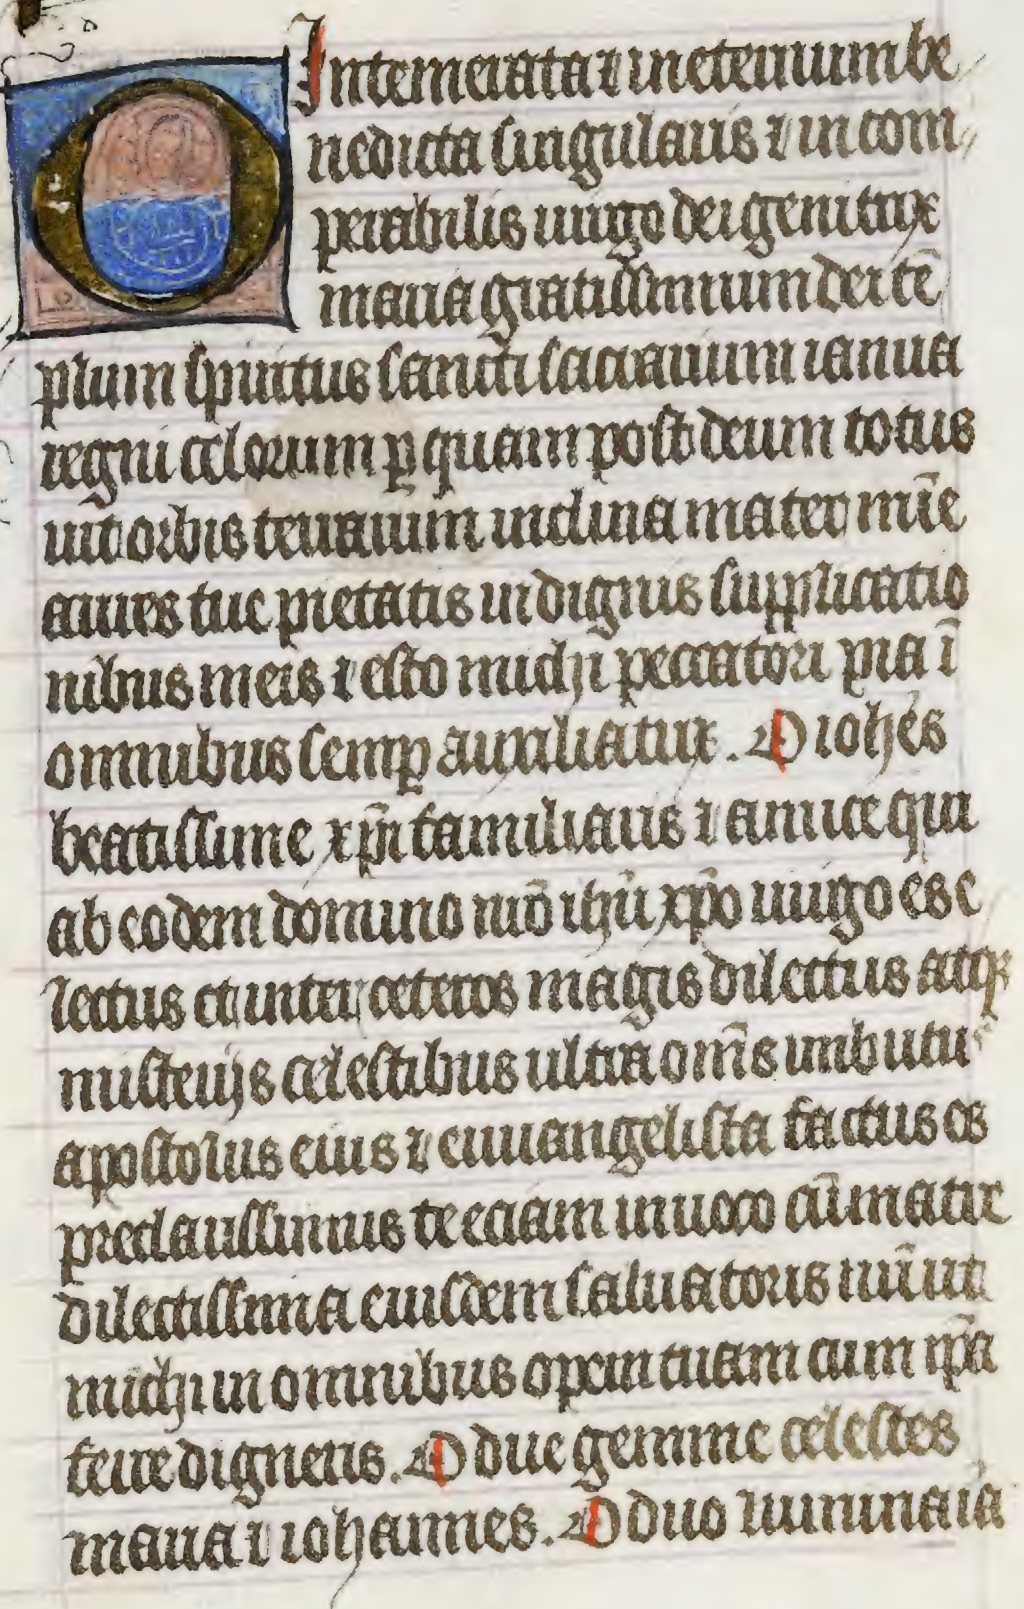 O Intemerata ⁊ in eternum be
nedicta singularis ⁊ in com
perabilis uirgo dei genitrix
maria gratissimum dei tē
plum spiritus sancti sacrarium ianua
regni celorum ꝑ quam post deum totus
uiuit orbis terrarum inclina mater mīe
aures tue pietatis indignis supplicatio
nibus meis ⁊ esto michi peccatori pia ī
omnibus semꝑ auxiliatrix. O iohēs
beatissime xp̄i familiaris ⁊ amice qui
ab eodem domino nrō ihū xp̄o uirgo es e
lectus et inter ceteros magis dilectus atqꝫ
misterijs celestibus ultra om̄s imbutus
apostolus eius ⁊ euuangelista factus es
preclarissimus te eciam inuoco cū matre
dilectissima eiusdem saluatoris
michi in omnibus opem tuam cum ip̄a
ferre digneris. O due gemme celestes
maria ⁊ iohannes. O duo luminaria